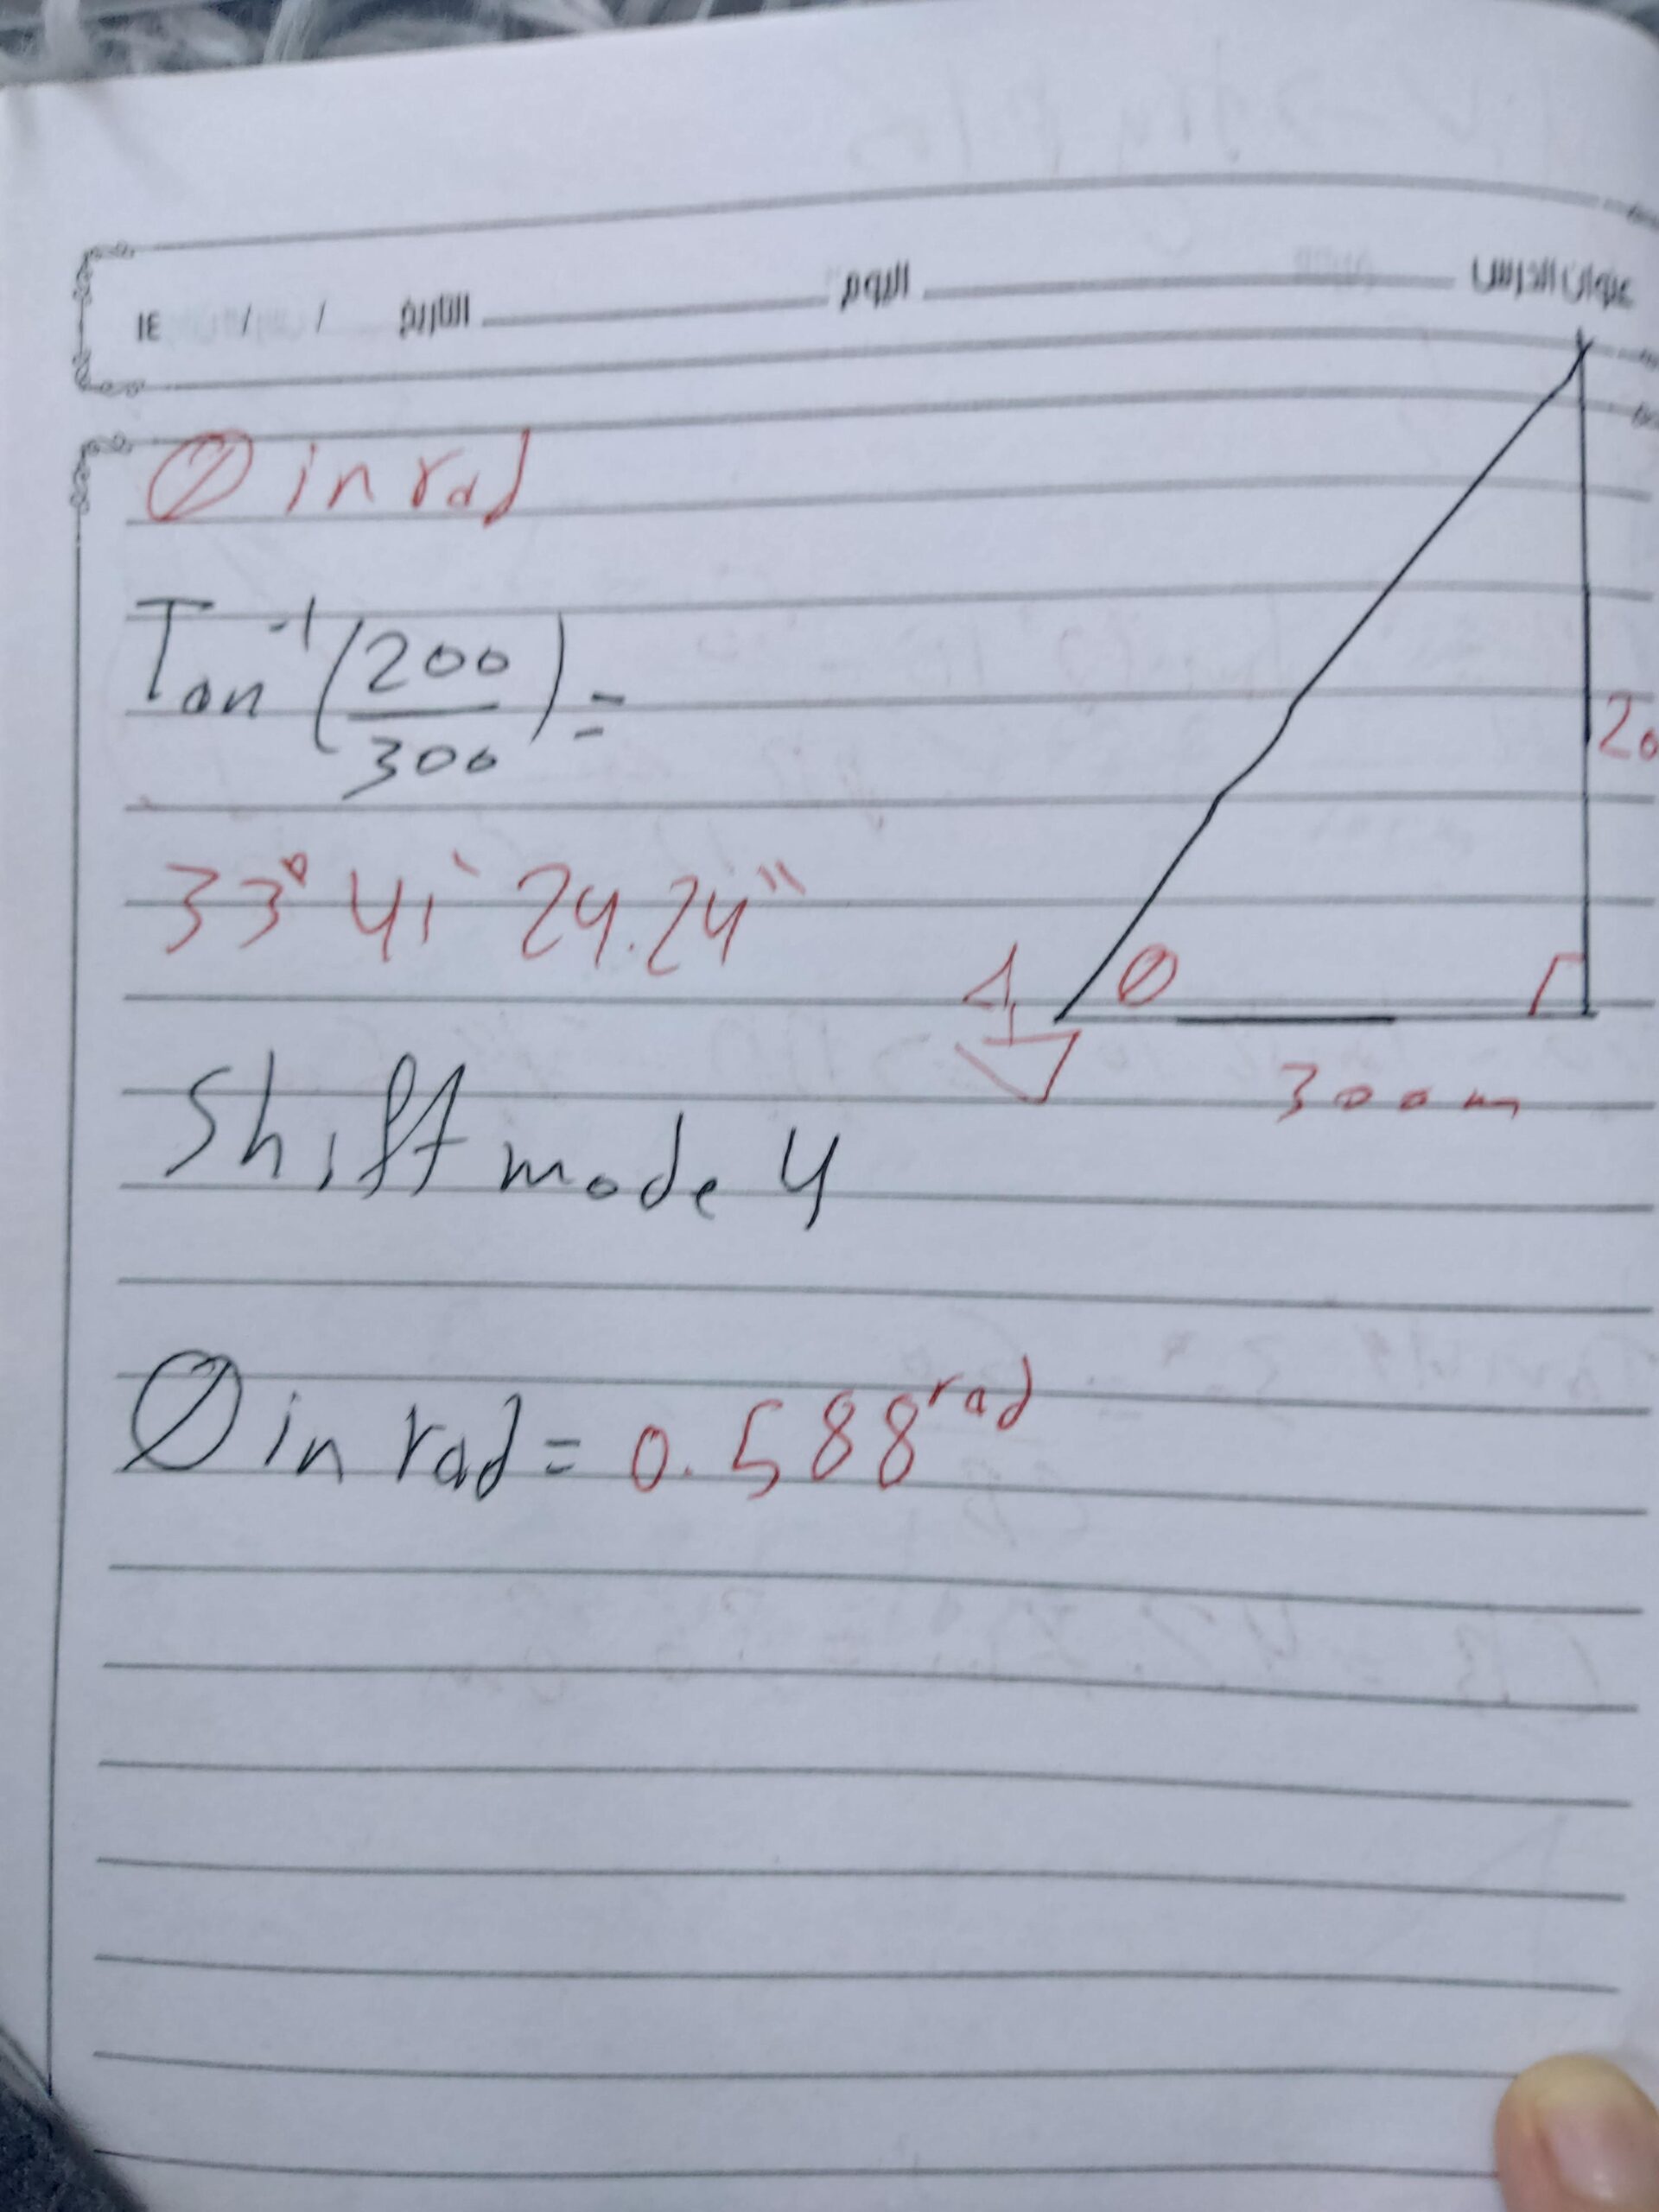 عنوان الدرس اليوم التاريخ / / ١٤
θ in rad
Tan⁻¹(200/300) =
33° 41` 24.24"
θ
300m
Shift mode 4
θ in rad = 0.588 rad